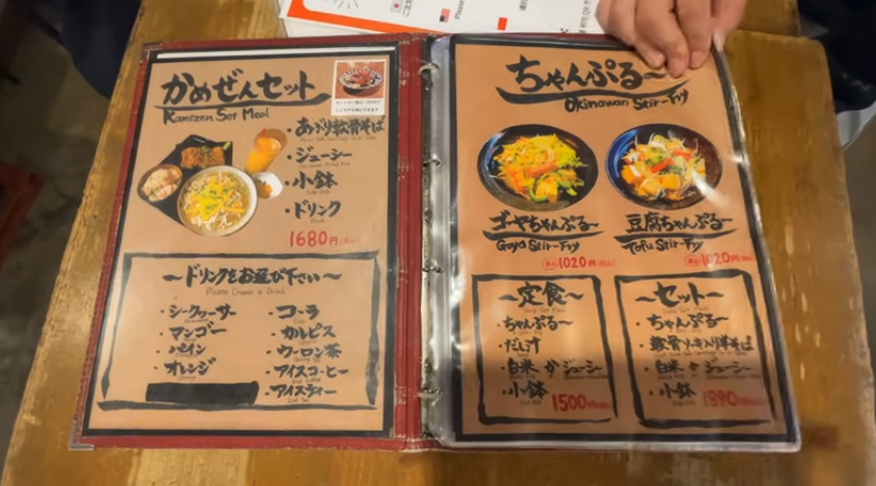 Please
かめぜんセット
Kamezen Set Meal
・あぶり軟骨そば
・ジューシー
・小鉢
Side Dish
・ドリンク
Drink
1680円(税込)
～ドリンクをお選び下さい～
Please Choose a Drink
・シークヮーサー
・マンゴー
・パイン
・オレンジ
・コーラ
・カルピス
・ウーロン茶
・アイスコーヒー
・アイスティー
ちゃんぷる～
Okinawan Stir-Fry
ゴーヤちゃんぷる～
Goya Stir-Fry
1020円(税込)
豆腐ちゃんぷる～
Tofu Stir-Fry
1020円(税込)
～定食～
・ちゃんぷる～
・だし汁
・白米 か ジューシー
・小鉢
Side Dish
1500円(税込)
～セット～
・ちゃんぷる～
・白米 か ジューシー
・小鉢
Side Dish
1890円(税込)